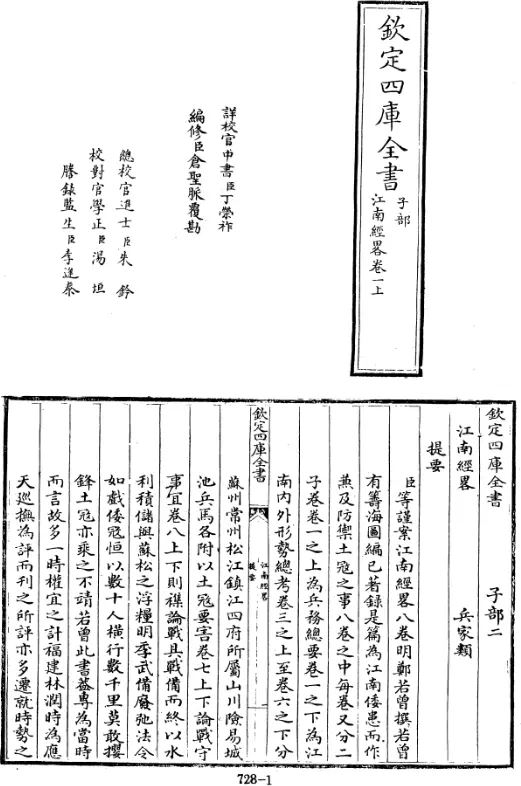 欽定四庫全書
子部
江南經畧卷一上
詳校官中書臣丁榮祚
編修臣倉聖脈覆勘
總校官進士臣朱鈐
校對官學正臣湯垣
謄錄監生臣李進泰
欽定四庫全書 子部二
江南經畧 兵家類
提要
臣等謹案江南經畧八卷明鄭若曾撰若曾
有籌海圖編已著錄是篇為江南倭患而作
兼及防禦土冦之事八卷之中每卷又分二
子卷卷一之上為兵務總要卷一之下為江
南內外形勢總考卷三之上至卷六之下分
欽定四庫全書
江南經畧
提要
一
蘇州常州松江鎮江四府所屬山川險易城
池兵馬各附以土冦要害卷七上下論戰守
事宜卷八上下則襍論戰具戰備而終以水
利積儲與蘇松之浮糧明季武備廢弛法令
如戲倭冦恒以數十人橫行數千里莫敢攖
鋒土冦亦乘之不靖若曾此書葢專為當時
而言故多一時權宜之計福建林潤時為應
天巡撫為評而刊之所評亦多遷就時勢之
728-1